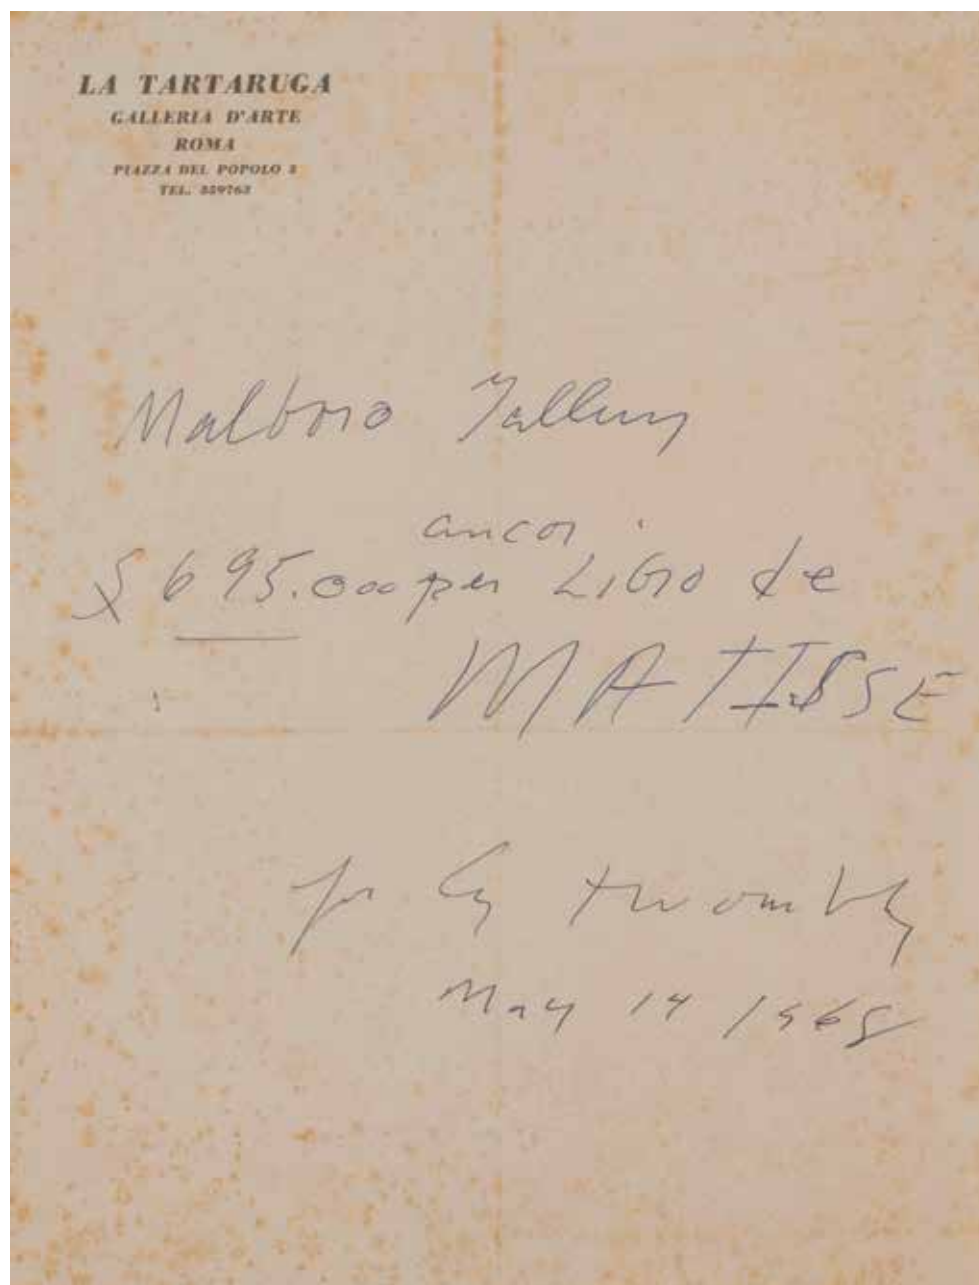 LA TARTARUGA
GALLERIA D'ARTE
ROMA
PIAZZA DEL POPOLO 3
TEL. 339763
Malboro Gallery
ancor
695.000 per LiBro de
MATISSE
for Cy twombly
May 14 1965